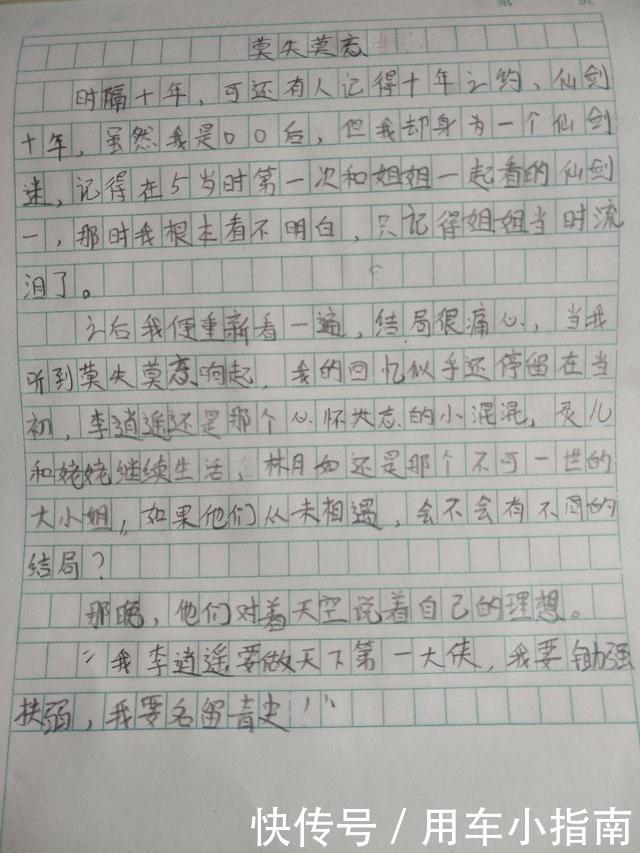 第 页
莫失莫忘
时隔十年，可还有人记得十年之约、仙剑
十年，虽然我是00后，但我却身为一个仙剑
迷，记得在5岁时第一次和姐姐一起看的仙剑
一，那时我根本看不明白，只记得姐姐当时流
泪了。
之后我便重新看一遍，结局很痛心，当我
听到莫失莫忘响起，我的回忆似乎还停留在当
初，李逍遥还是那个心怀壮志的小混混，灵儿
和姥姥继续生活，林月如还是那个不可一世的
大小姐，如果他们从未相遇，会不会有不同的
结局？
那晚，他们对着天空说着自己的理想。
"我李逍遥要做天下第一大侠，我要锄强
扶弱，我要名留青史！"
快传号 / 用车小指南